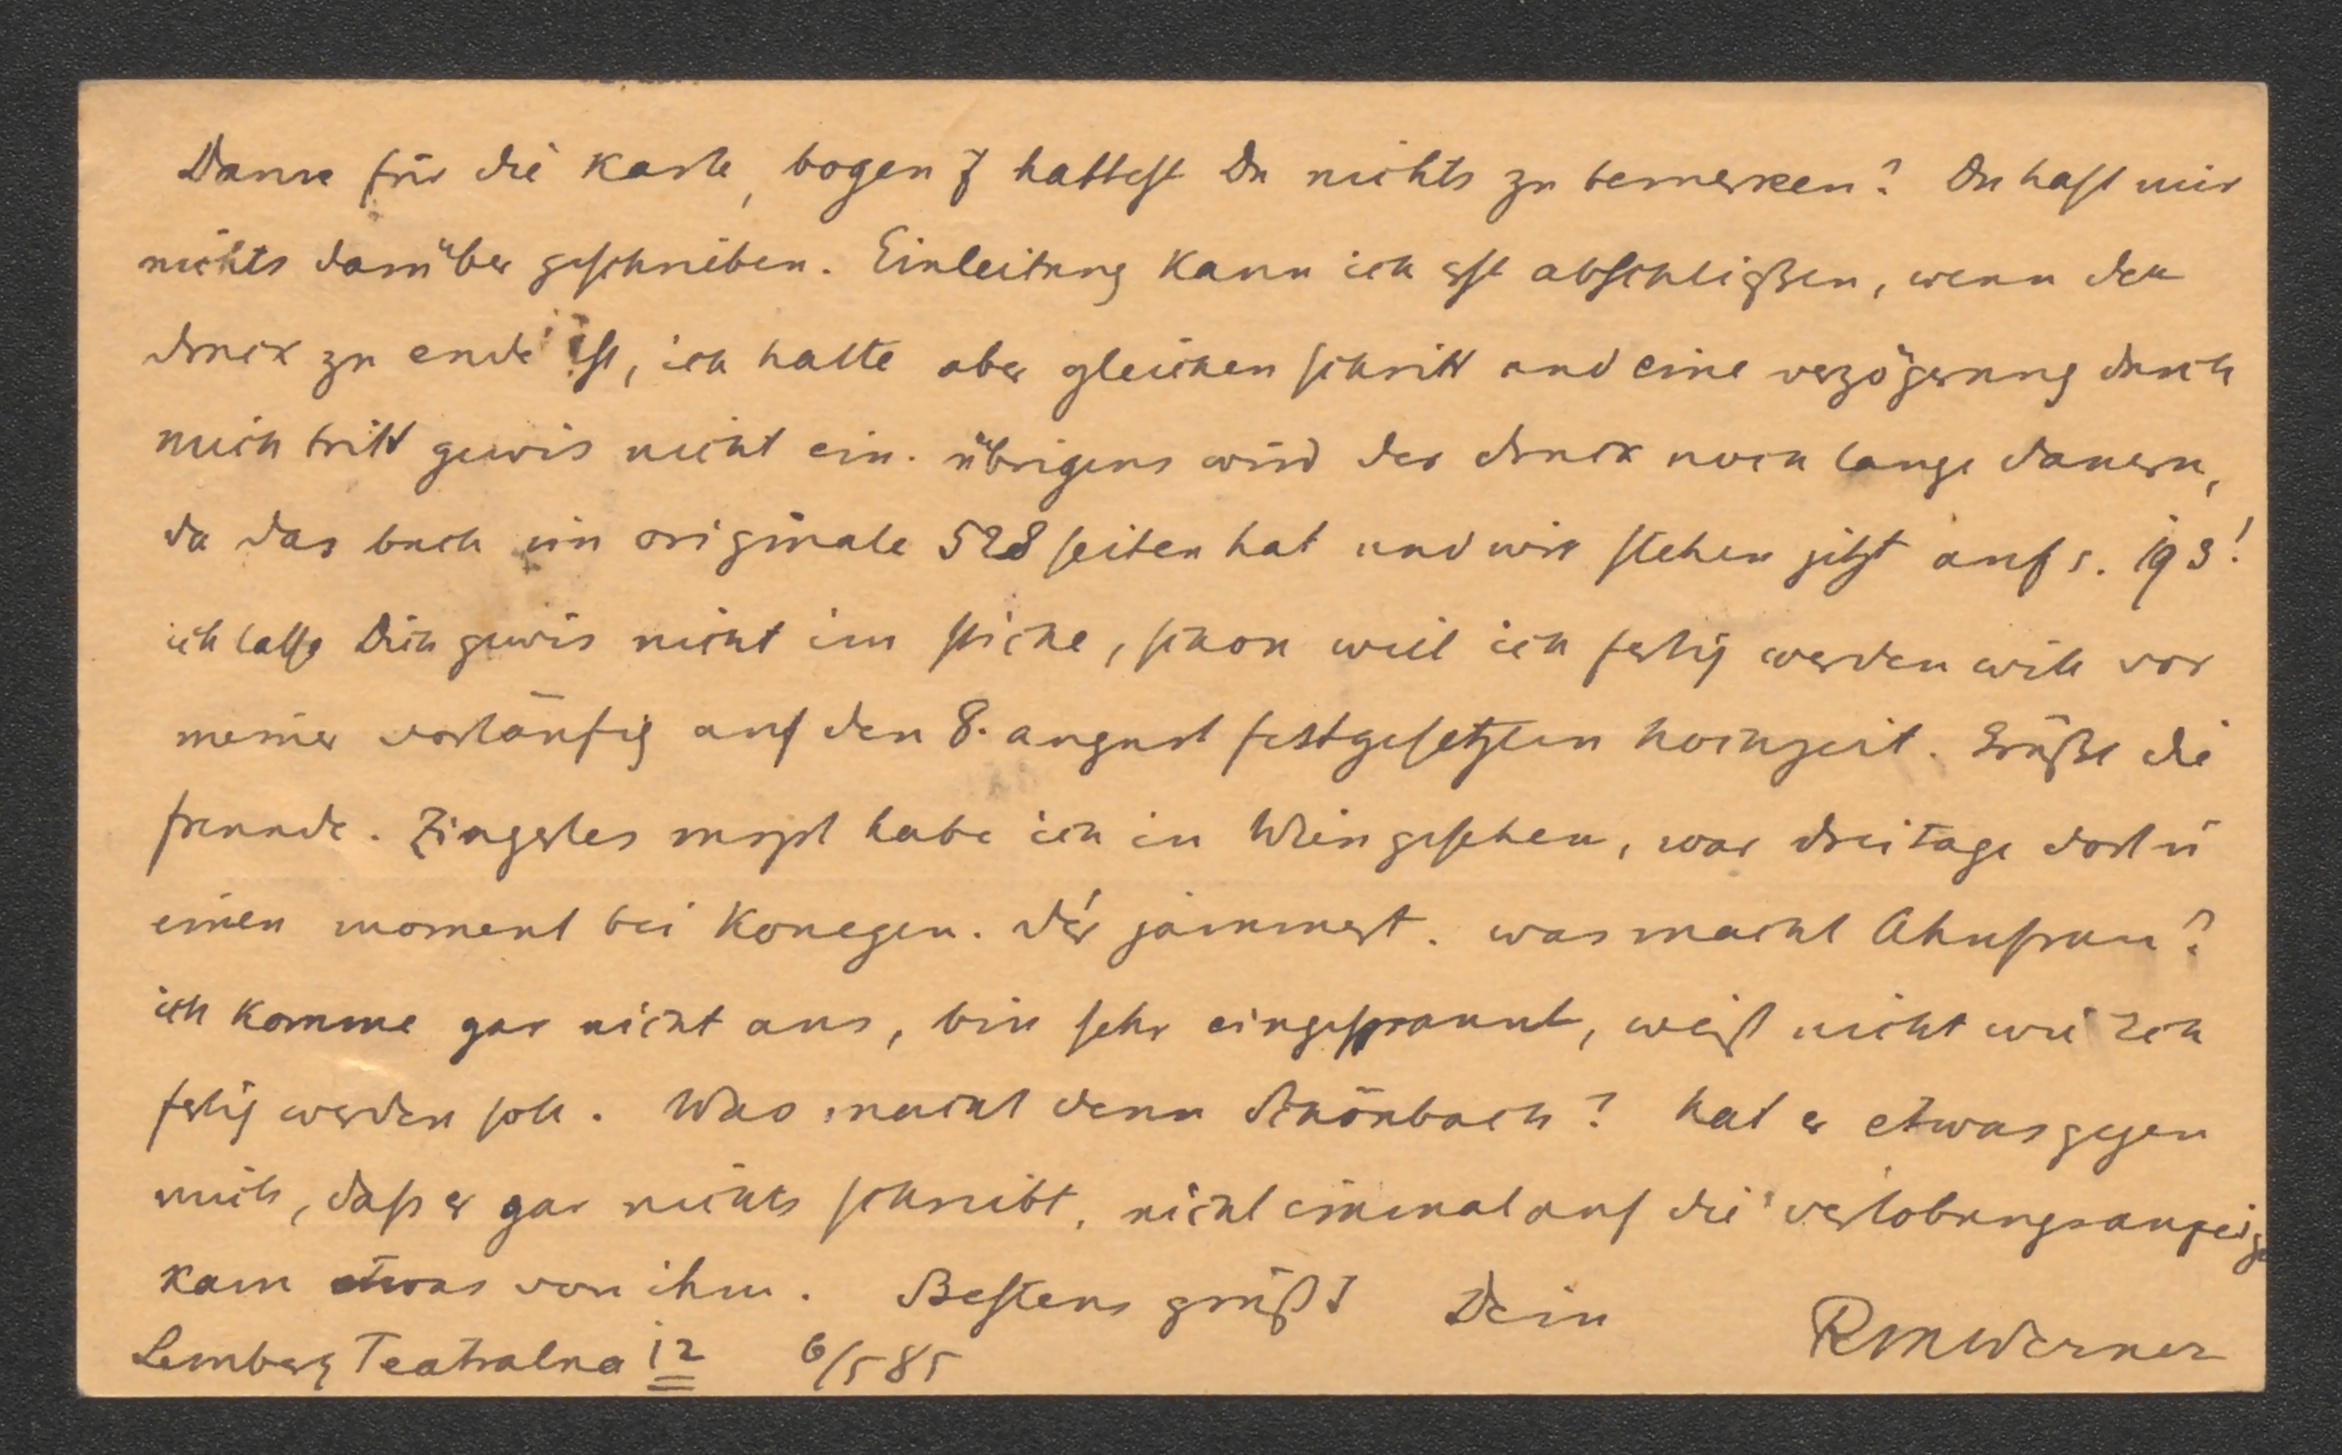 Danke für die karte, bogen 7 hattest Du nichts zu bemerken? Du hast mir
nichts darüber geschrieben. Einleitung kann ich erst abschließen, wenn der
druck zu ende ist, ich halte aber gleichen schritt und eine verzögerung durch
mich tritt gewis nicht ein. übrigens wird der druck noch lange dauern,
da das buch im originale 528 seiten hat und wir stehen jetzt auf s. 193!
ich lasse Dich gewis nicht im stiche, schon weil ich fertig werden will vor
meiner vorläufig auf den 8. august festgesetzten hochzeit. Grüße die
freunde. Zingerles habe ich in Wien gesehen, war drei tage dort u
einen moment bei Konegen. dér jammert. was macht Ahnfrau?
ich komme gar nicht aus, bin sehr eingespannt, weiß nicht wie ich
fertig werden soll. Was macht denn Schönbach? hat er etwas gegen
mich, dass er gar nichts schreibt, nicht einmal auf die verlobungsanzeige
kam etwas von ihm. Bestens grüßt Dein RMWerner
Lemberg Teatralna 12 6/5 85